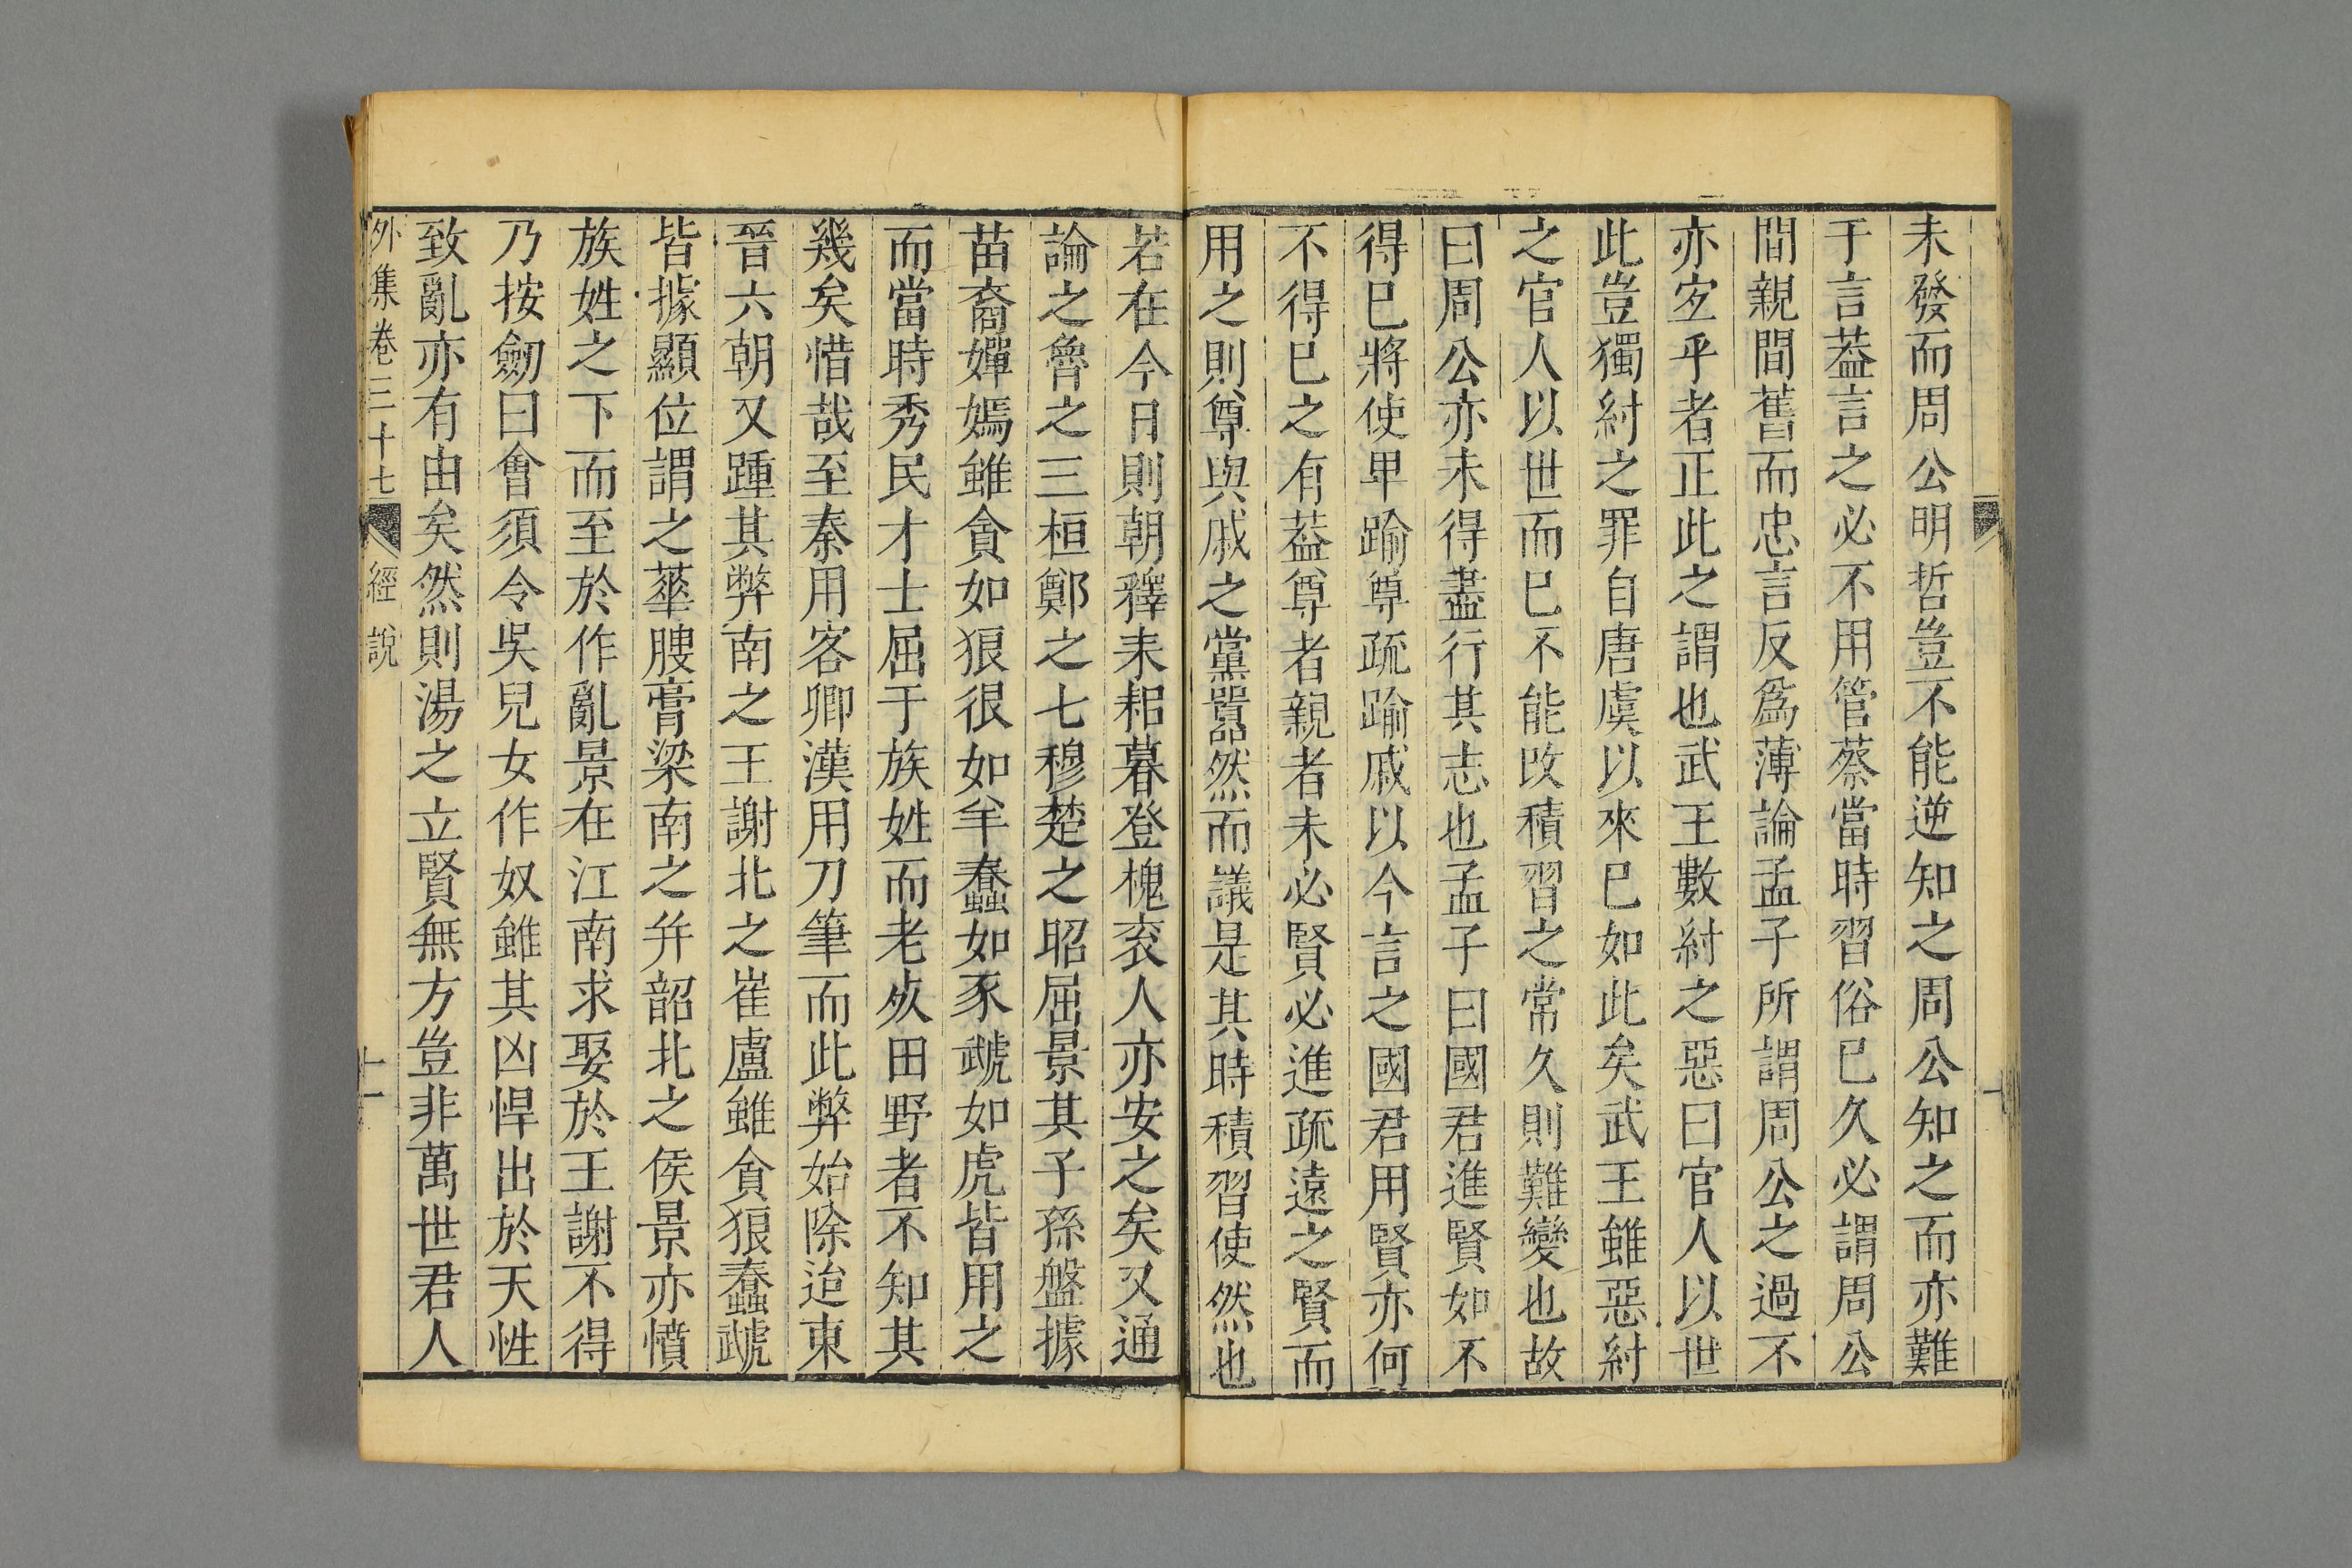 未發而周公明哲豈不能逆知之周公知之而亦難
于言葢言之必不用管蔡當時習俗已久必謂周公
間親間舊而忠言反爲薄論孟子所謂周公之過不
亦宜乎者正此之謂也武王數紂之惡曰官人以世
此豈獨紂之罪自唐虞以來已如此矣武王雖惡紂
之官人以世而已不能改積習之常久則難變也故
曰周公亦未得盡行其志也孟子曰國君進賢如不
得已將使卑踰尊疏踰戚以今言之國君用賢亦何
不得已之有葢尊者親者未必賢必進疏遠之賢而
用之則尊與戚之黨嚚然而議是其時積習使然也
若在今日則朝釋耒耜暮登槐衮人亦安之矣又通
論之魯之三桓鄭之七穆楚之昭屈景其子孫盤據
苗裔嬋嫣雖貪如狼很如羊蠢如豕虣如虎皆用之
而當時秀民才士屈于族姓而老死田野者不知其
幾矣惜哉至秦用客卿漢用刀筆而此弊始除迨東
晉六朝又踵其弊南之王謝北之崔盧雖貪狼蠢虣
皆據顯位謂之華腴膏梁南之并韶北之侯景亦憤
族姓之下而至於作亂景在江南求娶於王謝不得
乃按劒曰會須令吳兒女作奴雖其凶悍出於天性
致亂亦有由矣然則湯之立賢無方豈非萬世君人
外集卷三十七 經說 十一